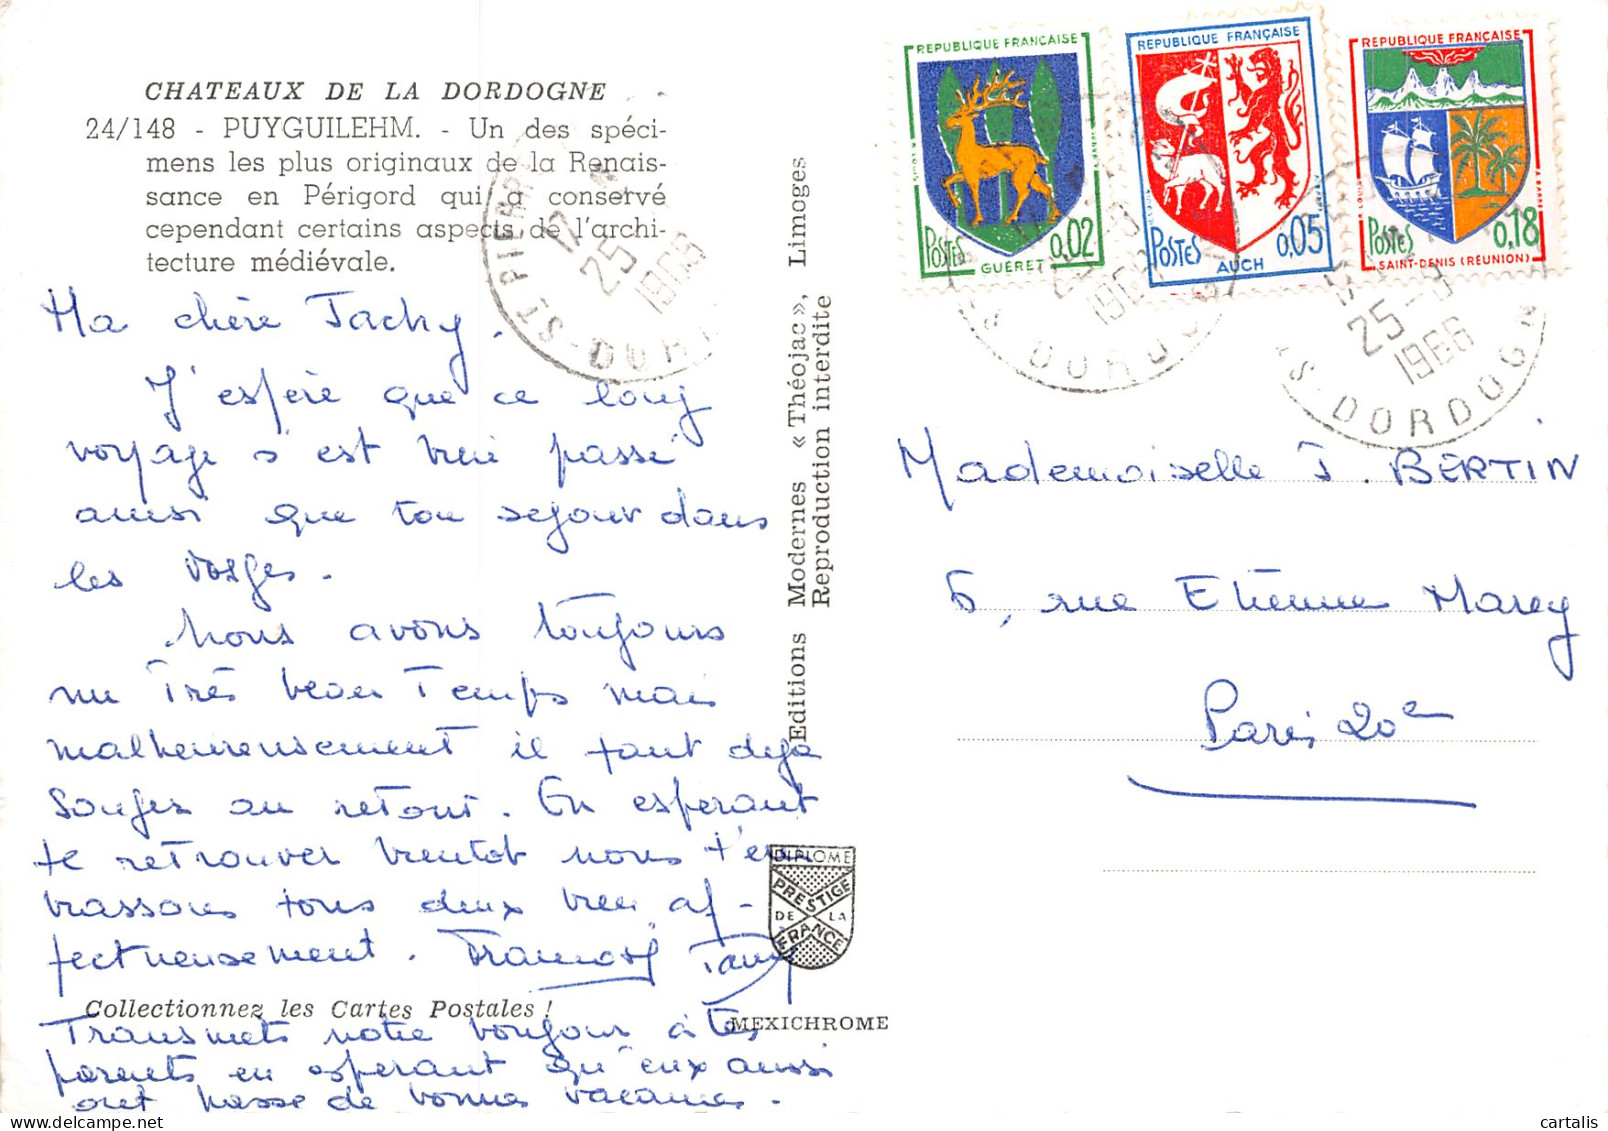 CHATEAUX DE LA DORDOGNE
24/148 - PUYGUILEHM. - Un des spéci-
mens les plus originaux de la Renais-
sance en Périgord qui a conservé
cependant certains aspects de l'archi-
tecture médiévale.
Ma chère Jacky.
J'espère que ce long
voyage s'est bien passé
ainsi que ton sejour dans
les Vosges.
Nous avons toujours
un très beau temps mais
malheureusement il faut deja
songer au retour. En esperant
te retrouver bientot nous t'em
brassons tous deux bien af-
fectueusement.
Collectionnez les Cartes Postales !
Transmets notre bonjour à tes
parents en esperant qu'eux aussi
ont passe de bonnes vacances.
Editions Modernes « Théojac », Limoges
Reproduction interdite
DIPLOME
PRESTIGE
DE LA
FRANCE
MEXICHROME
REPUBLIQUE FRANÇAISE
POSTES 0,02
GUÉRET
REPUBLIQUE FRANÇAISE
POSTES 0,05
AUCH
REPUBLIQUE FRANÇAISE
POSTES 0,18
SAINT-DENIS (RÉUNION)
25-
1966
DORDOGN
Mademoiselle J. BERTIN
6, rue Etienne Marey
Paris 20e
cartalis